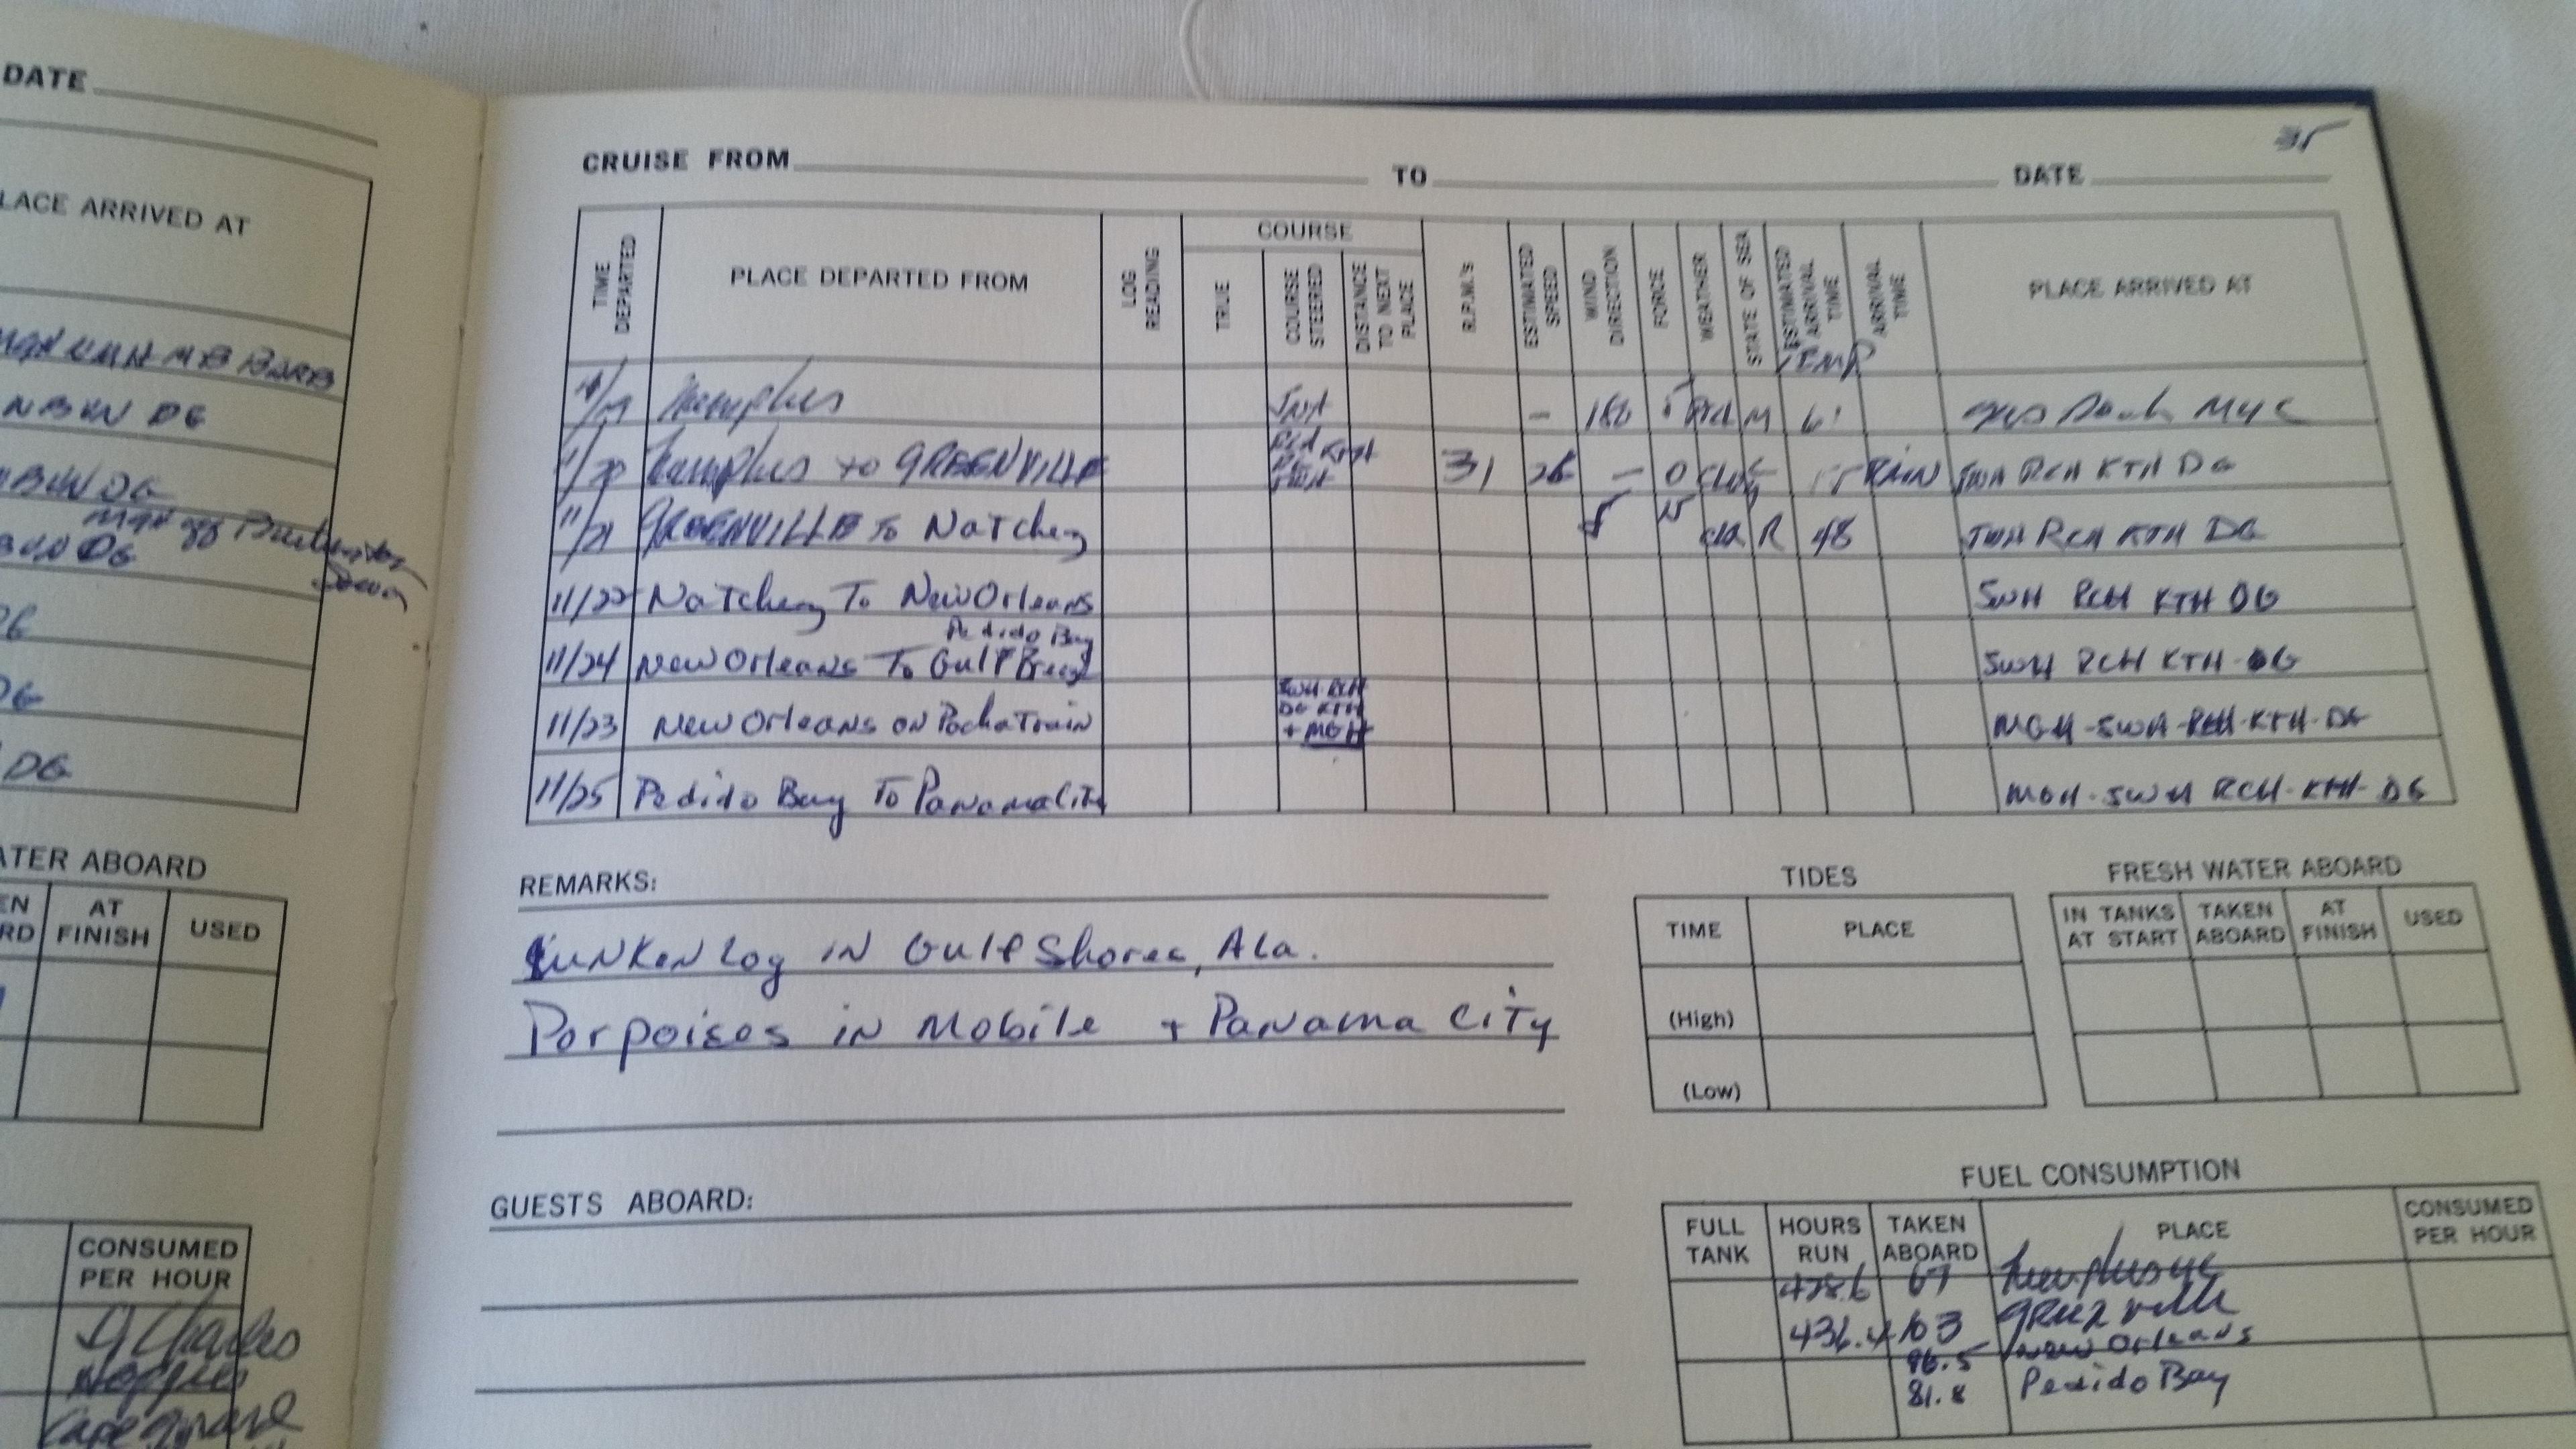 DATE
LACE ARRIVED AT
MGH KMH MB BARB
N BWN DG
BWN DG
DG
DG
DG
ATER ABOARD
AT FINISH
USED
CONSUMED PER HOUR
St Charles
Hoppies
Cape
35
CRUISE FROM TO DATE
TIME DEPARTED
PLACE DEPARTED FROM
LOG READING
COURSE
TRUE
COURSE STEERED
DISTANCE TO NEXT PLACE
R.P.M.'s
ESTIMATED SPEED
WIND DIRECTION
FORCE
WEATHER
STATE OF SEA
ESTIMATED ARRIVAL TIME
ARRIVAL TIME
PLACE ARRIVED AT
TEMP
Memphis 180 M gas Dock MYC
11/20 Memphis to GREENVILLE 31 26 — 0 RAIN SWH RCH KTH DG
11/21 GREENVILLE To Natchez S 15 R 48 SWH RCH KTH DG
11/22 Natchez To New Orleans SWH RCH KTH DG
Pedido Bay
11/24 New Orleans To Gulf Breeze SWH RCH KTH-DG
11/23 New Orleans on PochaTrain SWH-RCH DG KTH + MGH MGH-SWH-RCH-KTH-DG
11/25 Pedido Bay To Panama City MGH-SWH RCH-KTH-DG
REMARKS:
SUNKEN Log in Gulf Shores, Ala.
Porpoises in Mobile + Panama City
GUESTS ABOARD:
TIDES
TIME PLACE
(High)
(Low)
FRESH WATER ABOARD
IN TANKS AT START
TAKEN ABOARD
AT FINISH
USED
FUEL CONSUMPTION
FULL TANK
HOURS RUN
TAKEN ABOARD
PLACE
CONSUMED PER HOUR
428.6 67
436.4 103
96.5 New Orleans
81.8 Pedido Bay